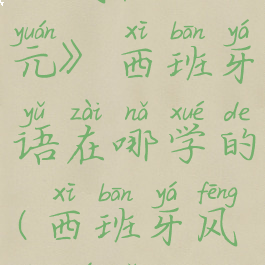 yuán xī bān yá
元》 西班牙
yǔ zài nǎ xué de
语在哪学的
xī bān yá fēng
(西班牙风